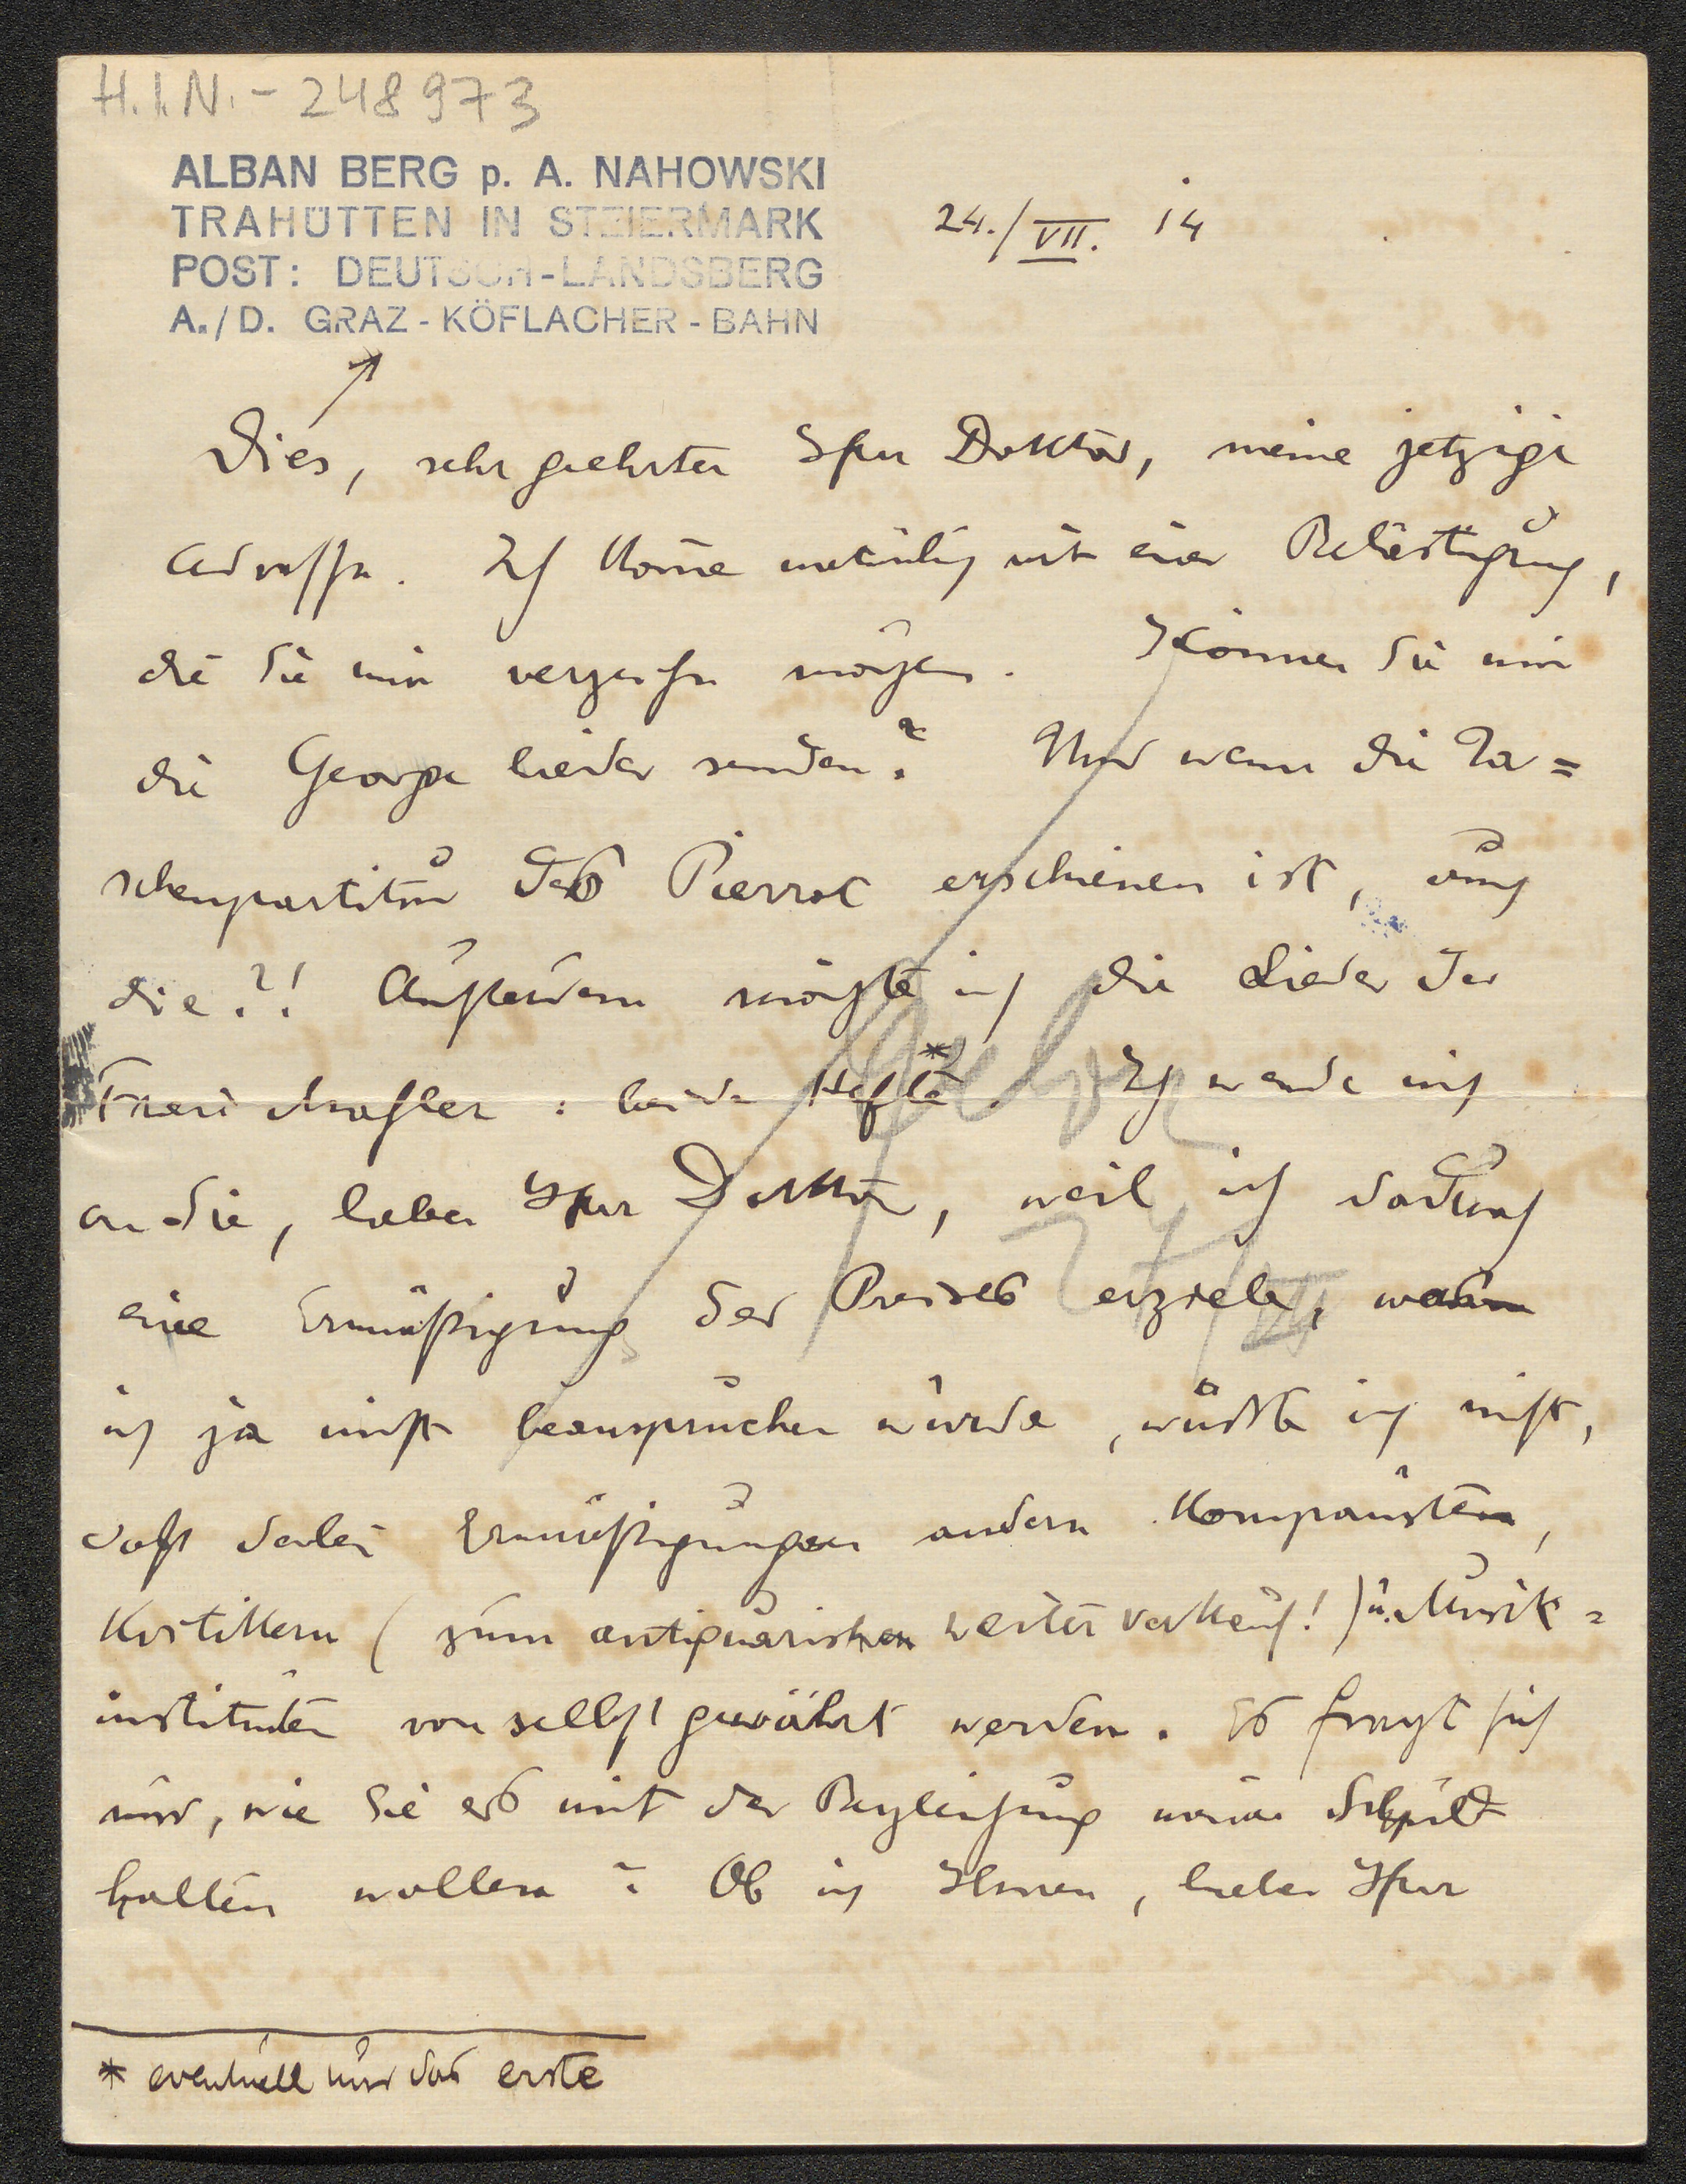 H.I.N.- 248973
ALBAN BERG p. A. NAHOWSKI
TRAHÜTTEN IN STEIERMARK
POST: DEUTSCH-LANDSBERG
A./D. GRAZ-KÖFLACHER-BAHN
24./VII. 14
Dies, sehr geehrter Herr Doktor, meine jetzige
Adresse. Ich kome natürlich mit einer Belästigung,
die Sie mir verzeihen mögen. Können Sie mir
die George Lieder senden? Und wenn die Ta=
schenpartitur des Pierrot erschienen ist, auch
die?! Außerdem möchte ich die Lieder der
Frau Mahler: beide Hefte*. Ich wende mich
an Sie, lieber Herr Doktor, weil ich dadurch
eine Ermäßigung des Preises erziele,
ich ja nicht beanspruchen würde, wüßte ich nicht,
daß derlei Ermäßigungen andern Komponisten,
Kritikern (zum antiquarischen Weiterverkauf!) u. Musik=
instituten von selbst gewährt werden. Es fragt sich
nur, wie Sie es mit der Begleichung meiner Schuld
halten wollen? Ob ich Ihnen, lieber Herr
* eventuell nur das erste